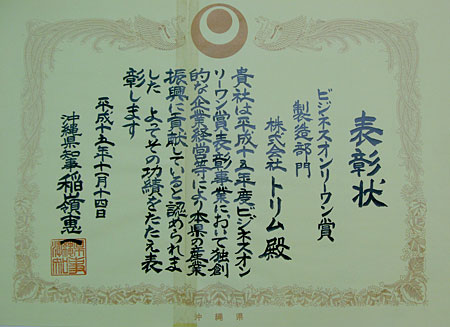 表彰状
ビジネスオンリーワン賞
製造部門
株式会社トリム殿
貴社は平成十五年度ビジネスオン
リーワン賞表彰事業において独創
的な企業経営等により本県の産業
振興に貢献していると認められま
した よってその功績をたたえ表
彰します
平成十五年十一月十四日
沖縄県知事 稲嶺惠一
沖縄県